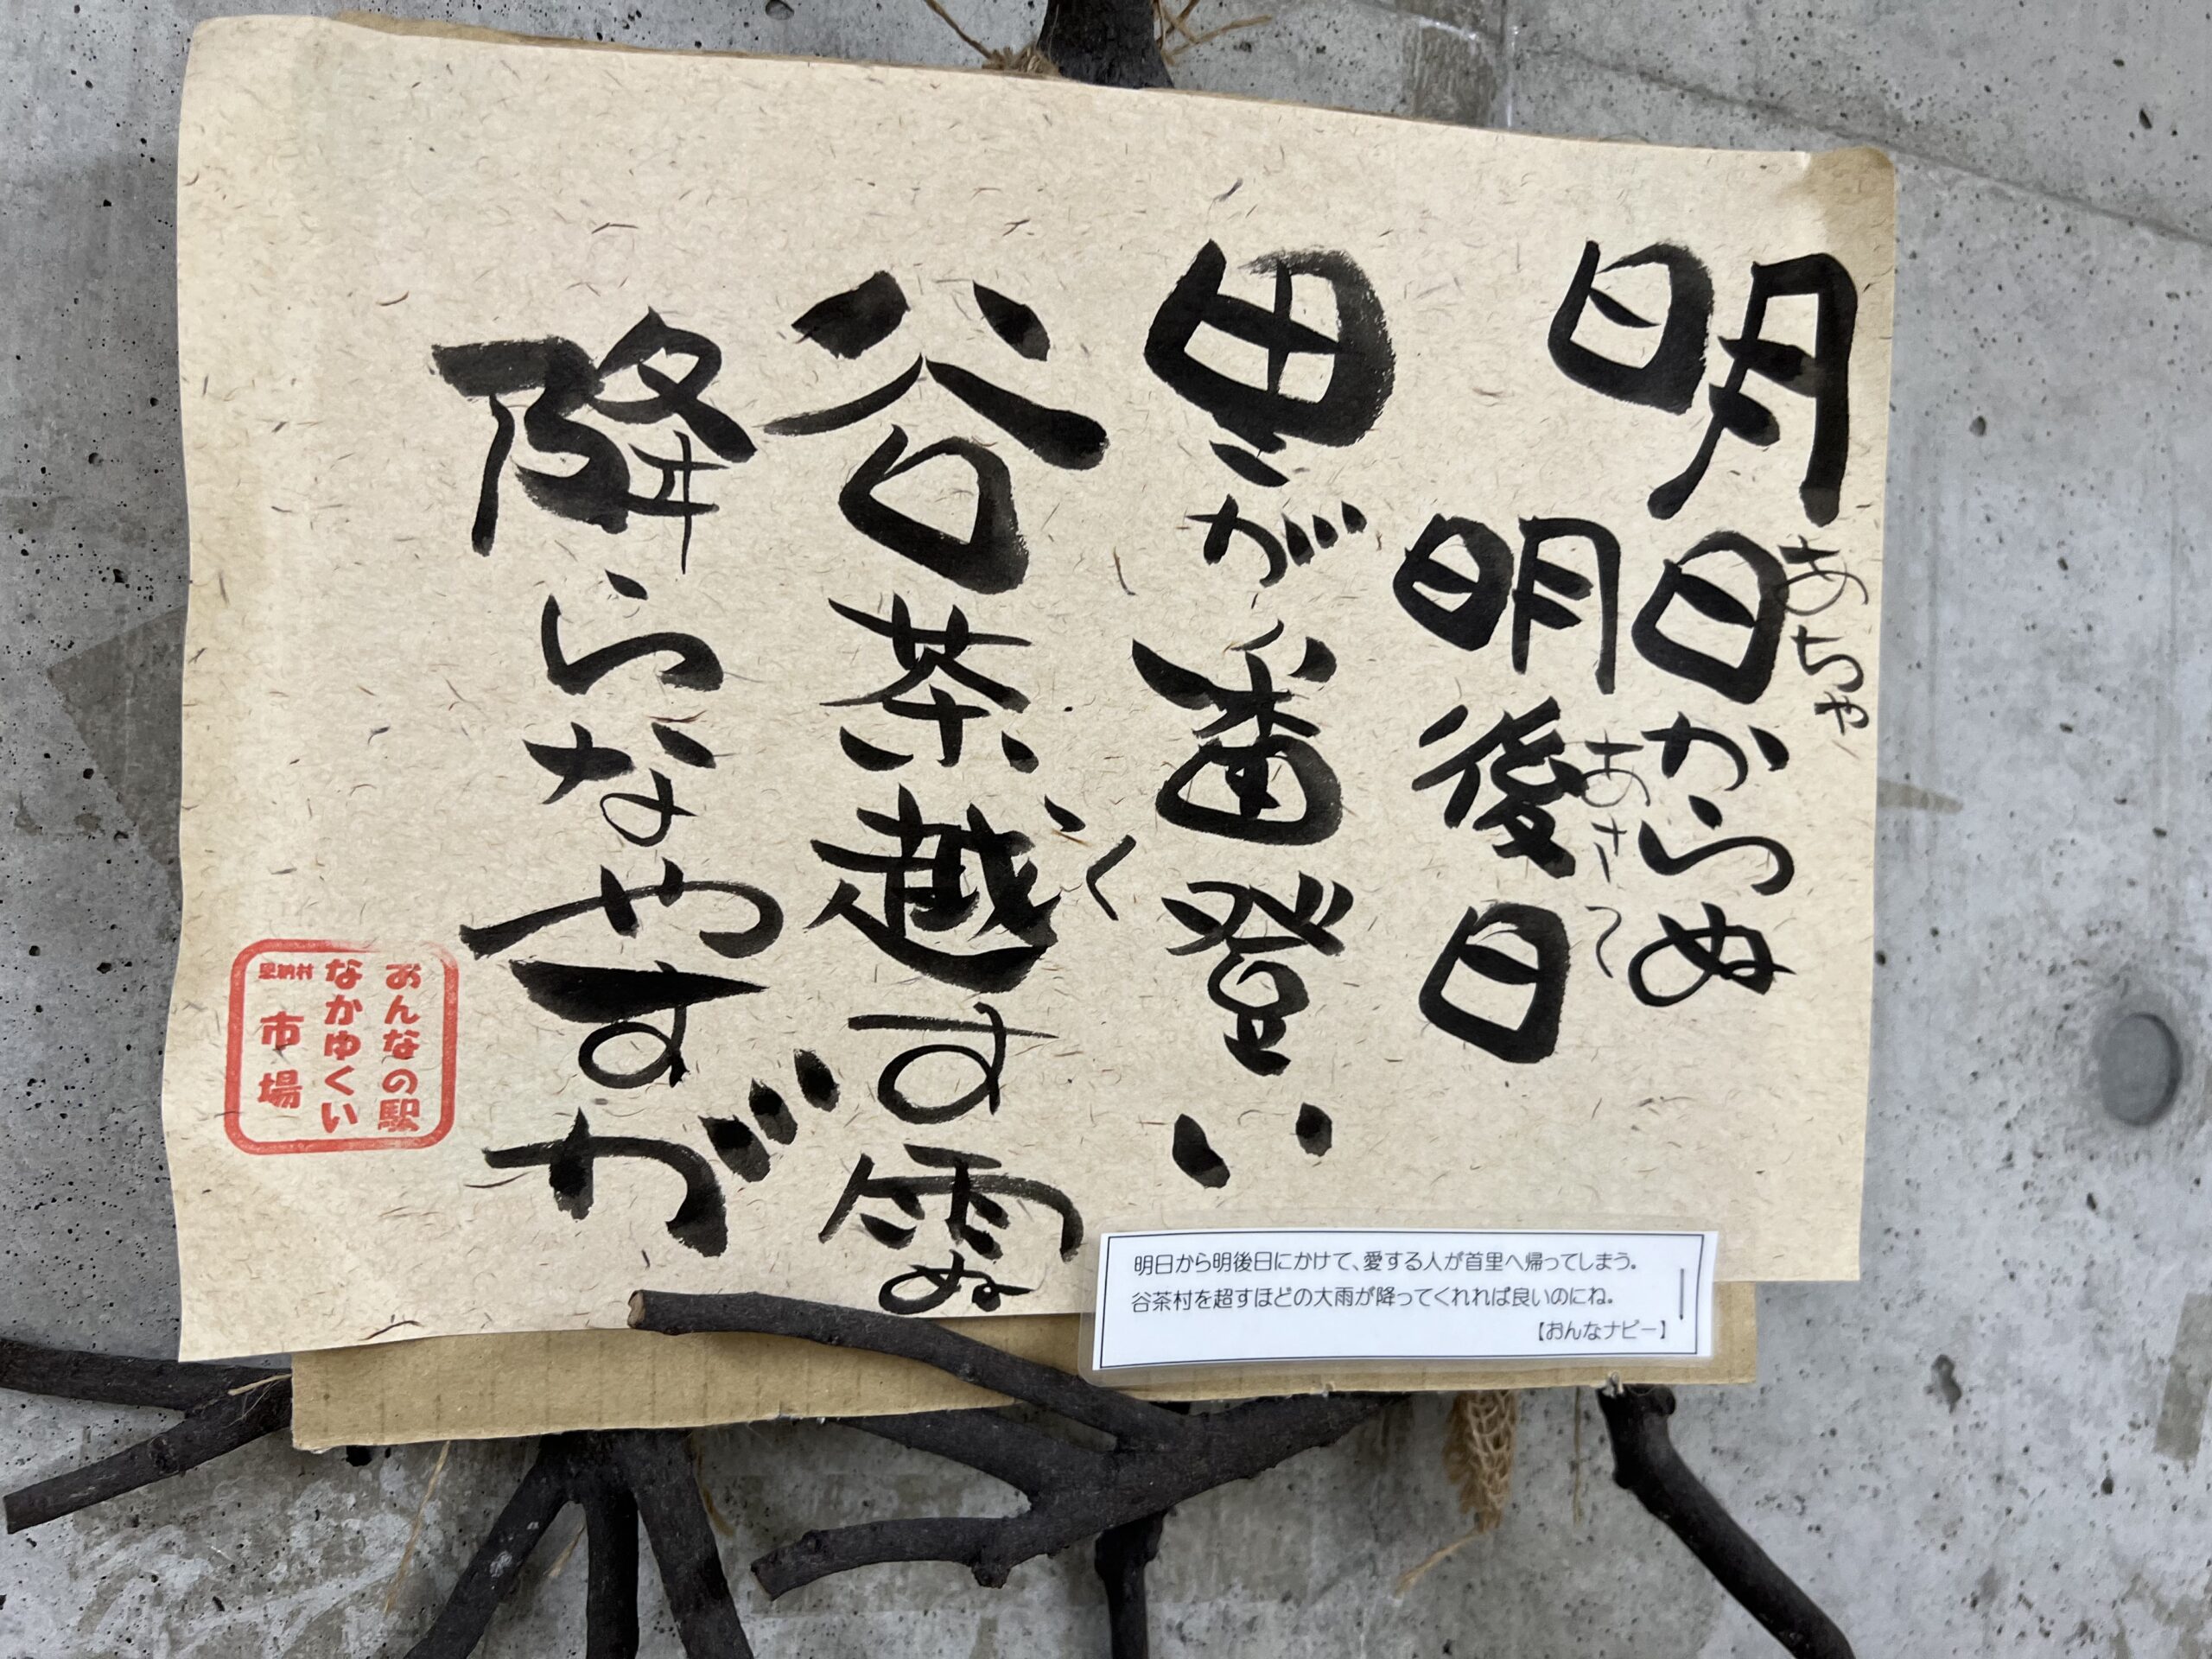 明日からぬ
あちゃ
明後日
あさて
里が番登い
谷茶越す雨ぬ
降らなやすが
おんなの駅
なかゆくい
恩納村 市場
明日から明後日にかけて、愛する人が首里へ帰ってしまう。
谷茶村を超すほどの大雨が降ってくれれば良いのにね。
【おんなナビー】